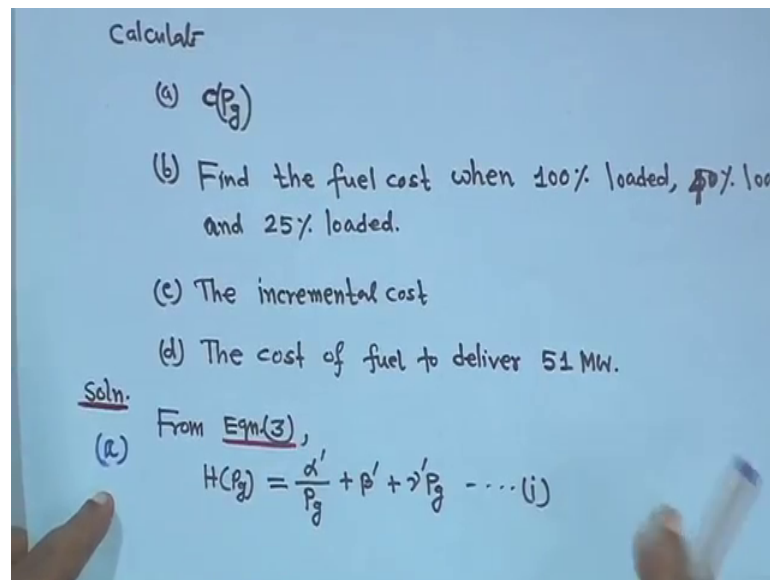 Calculate
(a) C(Pg)
(b) Find the fuel cost when 100% loaded, 50% loa
and 25% loaded.
(c) The incremental cost
(d) The cost of fuel to deliver 51 MW.
Soln.
(a) From Eqn.(3),
H(Pg) = α'/Pg + β' + γ'Pg ----(i)